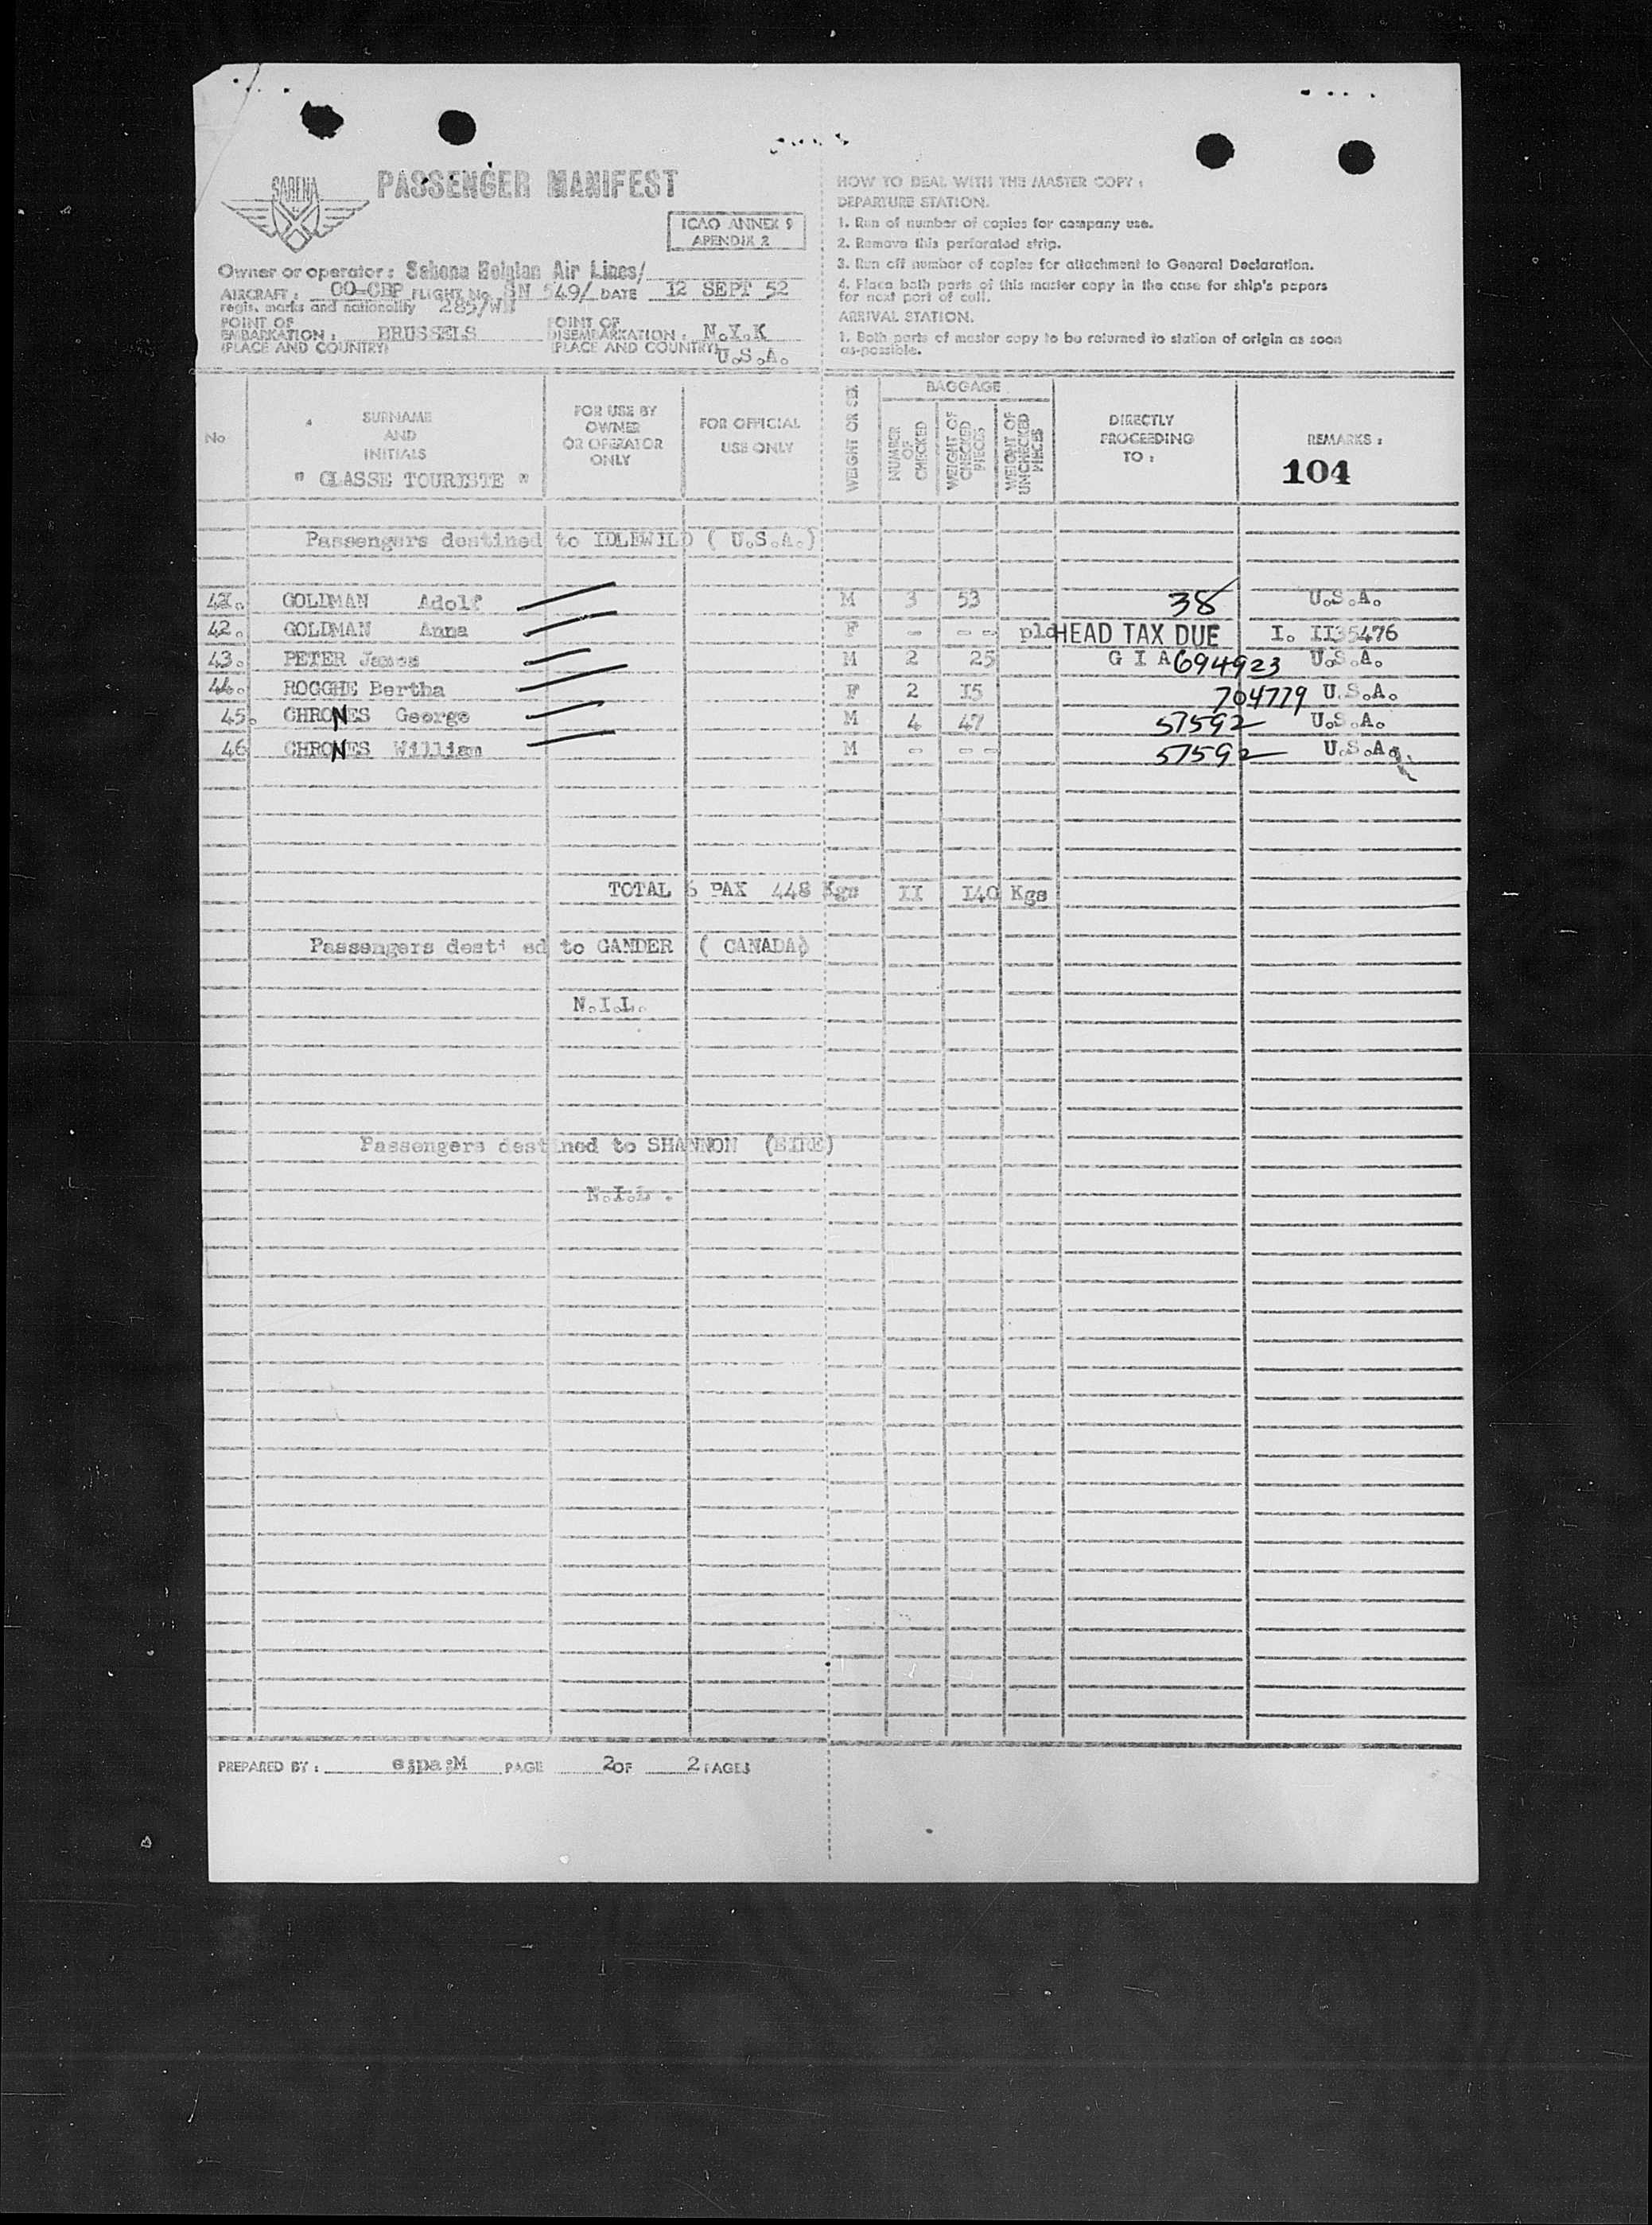 SABENA
PASSENGER MANIFEST
ICAO ANNEX 9
APENDIX 2
Owner or operator : Sabena Belgian Air Lines/
AIRCRAFT : OO-CBP FLIGHT No SN 549/ DATE 12 SEPT 52
regis. marks and nationality 285/WH
POINT OF EMBARKATION : BRUSSELS POINT OF DISEMBARKATION : N.Y.K
(PLACE AND COUNTRY) (PLACE AND COUNTRY) U.S.A.
HOW TO DEAL WITH THE MASTER COPY :
DEPARTURE STATION.
1. Run of number of copies for company use.
2. Remove this perforated strip.
3. Run off number of copies for attachment to General Declaration.
4. Place both parts of this master copy in the case for ship's papers
for next port of call.
ARRIVAL STATION.
1. Both parts of master copy to be returned to station of origin as soon
as-possible.
No
SURNAME
AND
INITIALS
" CLASSE TOURISTE "
FOR USE BY
OWNER
OR OPERATOR
ONLY
FOR OFFICIAL
USE ONLY
WEIGHT OR SEX
BAGGAGE
NUMBER OF CHECKED
WEIGHT OF CHECKED PIECES
WEIGHT OF UNCHECKED PIECES
DIRECTLY
PROCEEDING
TO :
REMARKS :
104
Passengers destined to IDLEWILD ( U.S.A.)
41. GOLDMAN Adolf M 3 53 38 U.S.A.
42. GOLDMAN Anna F - - - - pld HEAD TAX DUE I. II35476
43. PETER James M 2 25 G I A 694923 U.S.A.
44. ROGGHE Bertha F 2 I5 704779 U.S.A.
45. CHRONES George M 4 47 57592 U.S.A.
46 CHRONES William M - - - - 57592 U.S.A.
TOTAL 6 PAX 448 Kgs II I40 Kgs
Passengers desti ed to GANDER ( CANADA)
N.I.L.
Passengers destined to SHANNON (EIRE)
N.I.L .
PREPARED BY : e;pa;M PAGE 2 OF 2 PAGES